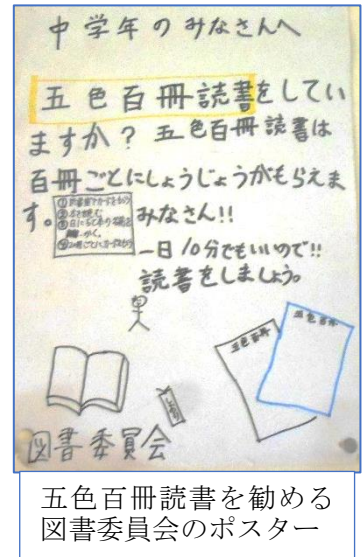 中学年のみなさんへ
五色百冊読書をしてい
ますか? 五色百冊読書は
百冊ごとにしょうじょうがもらえま
す。
みなさん!!
一日10分でもいいので!!
読書をしましょう。
五色百冊
五色百冊
しおり
図書委員会
五色百冊読書を勧める
図書委員会のポスター